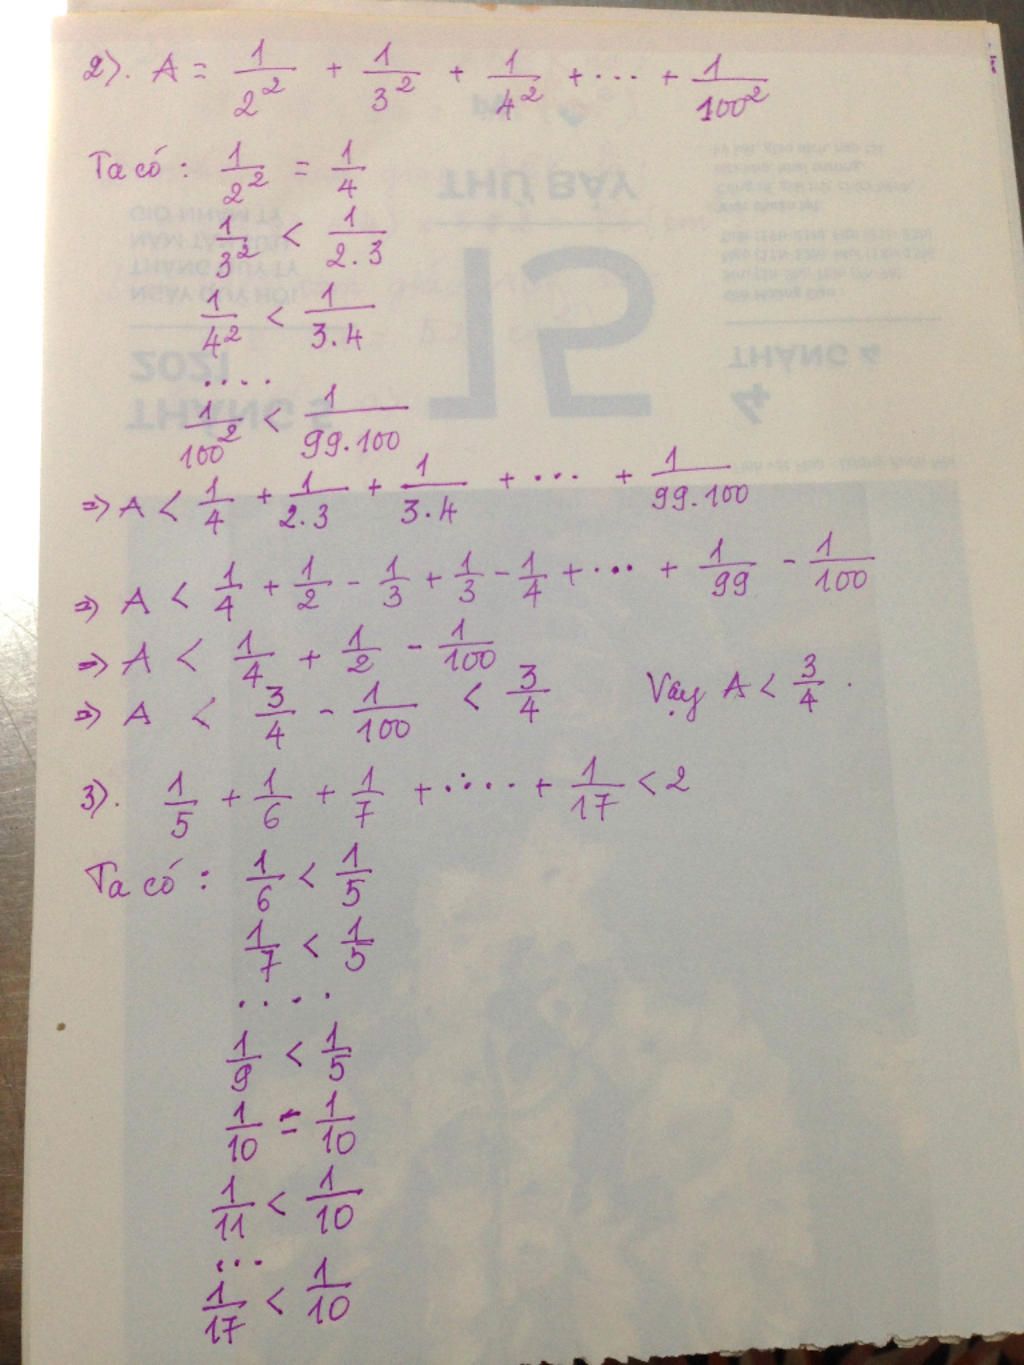 2). A = 1/2² + 1/3² + 1/4² + ... + 1/100²
Ta có: 1/2² = 1/4
1/3² < 1/2.3
1/4² < 1/3.4
....
1/100² < 1/99.100
=> A < 1/4 + 1/2.3 + 1/3.4 + ... + 1/99.100
=> A < 1/4 + 1/2 - 1/3 + 1/3 - 1/4 + ... + 1/99 - 1/100
=> A < 1/4 + 1/2 - 1/100
=> A < 3/4 - 1/100 < 3/4 Vậy A < 3/4.
3). 1/5 + 1/6 + 1/7 + .... + 1/17 < 2
Ta có: 1/6 < 1/5
1/7 < 1/5
....
1/9 < 1/5
1/10 = 1/10
1/11 < 1/10
...
1/17 < 1/10
THỨ BẢY
15
2021
THÁNG 4
4